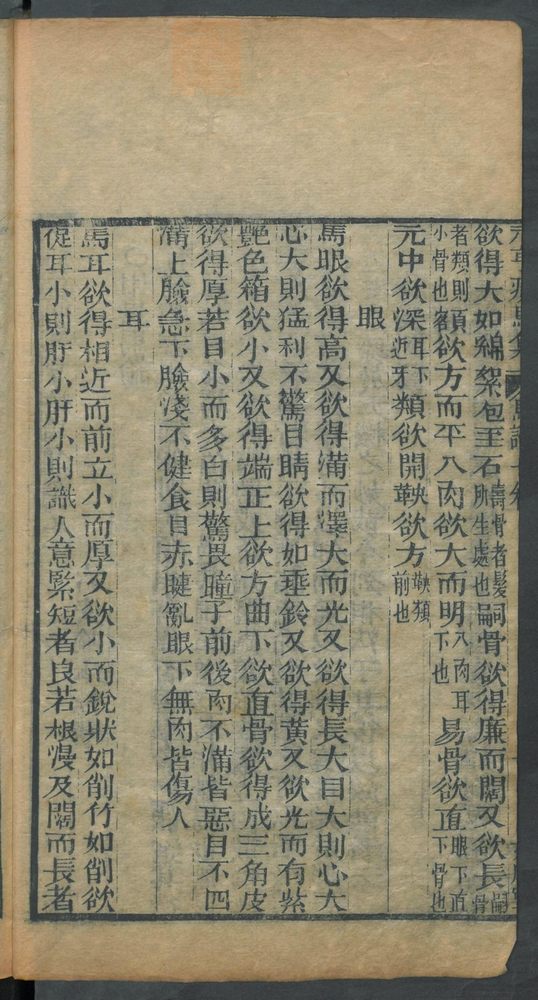 欲得大如綿絮包圭石壽骨者髮所生處也嗣骨欲得廉而闊又欲長嗣骨
者頰則頂小骨也客欲方而平八肉欲大而明八肉耳下也易骨欲直眼下直下骨也
元中欲深耳下近牙頰欲開鞅欲方鞅頰前也
眼
馬眼欲得高又欲得滿而澤大而光又欲得長大目大則心大
心大則猛利不驚目睛欲得如垂鈴又欲得黃又欲光而有紫
艷色箱欲小又欲得端正上欲方曲下欲直骨欲得成三角皮
欲得厚若目小而多白則驚畏瞳子前後肉不滿皆惡目不四
滿上臉急下臉淺不健食目赤睫亂眼下無肉皆傷人
耳
馬耳欲得相近而前立小而厚又欲小而銳狀如削竹如削欲
促耳小則肝小肝小則識人意緊短者良若根慢及闊而長者